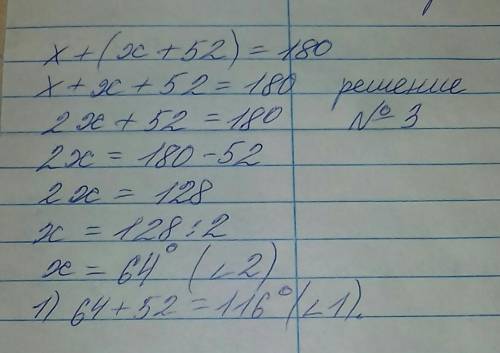 x + (x + 52) = 180
x + x + 52 = 180 решение
2x + 52 = 180 № 3
2x = 180 - 52
2x = 128
x = 128 : 2
x = 64° (∠2)
1) 64 + 52 = 116° (∠1).